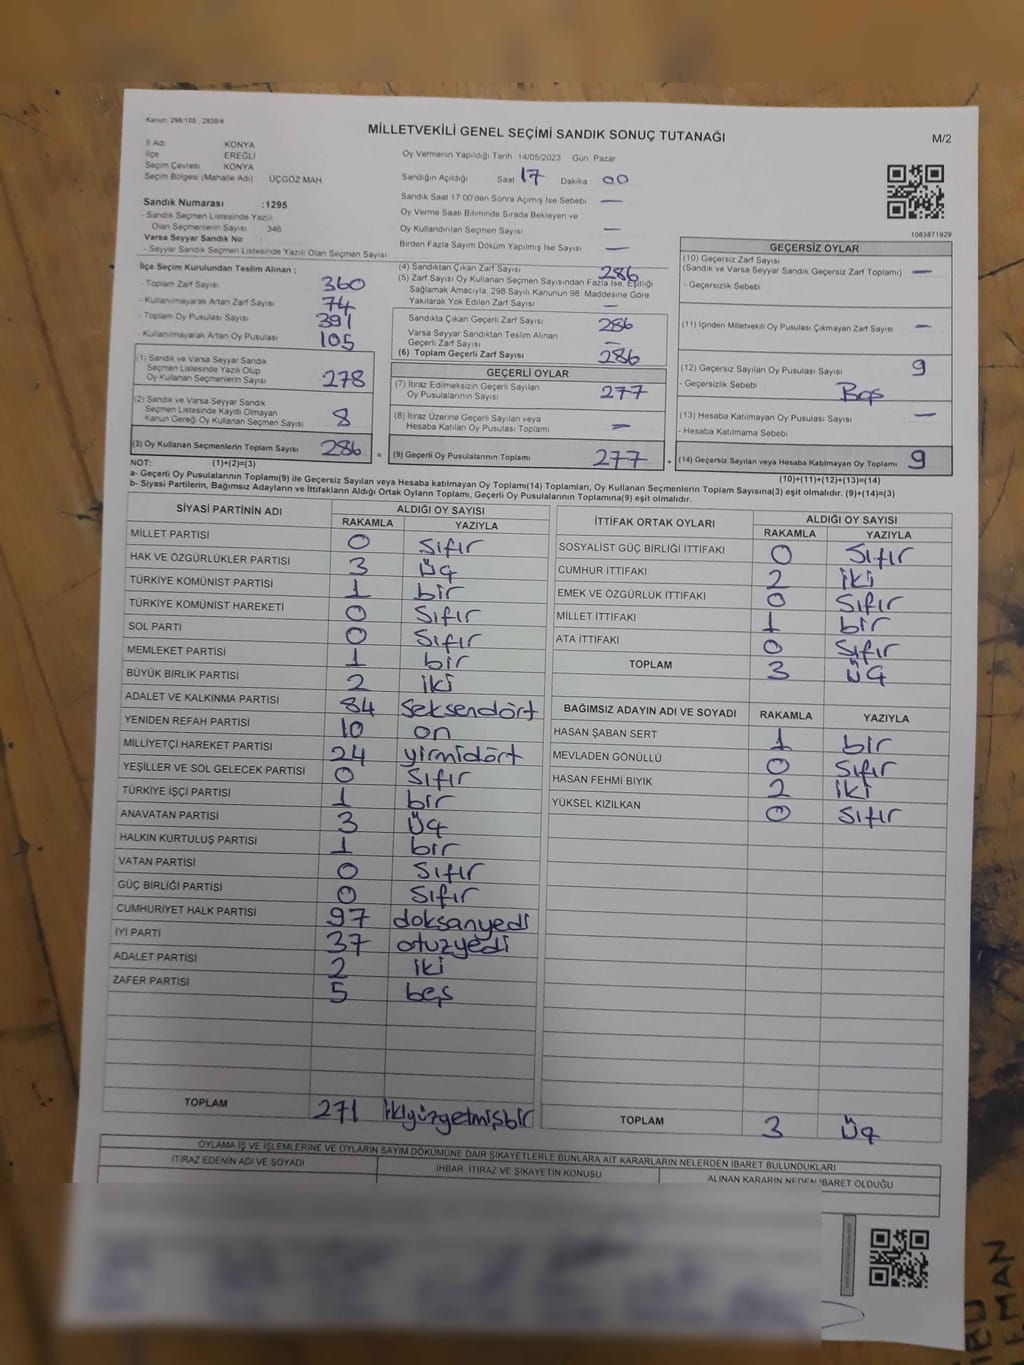 Kanun: 298/105 . 2839/4
MİLLETVEKİLİ GENEL SEÇİMİ SANDIK SONUÇ TUTANAĞI
M/2
İl Adı KONYA
İlçe EREĞLİ
Seçim Çevresi KONYA
Seçim Bölgesi (Mahalle Adı) ÜÇGÖZ MAH.
Sandık Numarası :1295
- Sandık Seçmen Listesinde Yazılı
Olan Seçmenlerin Sayısı 346
Varsa Seyyar Sandık No :
- Seyyar Sandık Seçmen Listesinde Yazılı Olan Seçmen Sayısı
Oy Vermenin Yapıldığı Tarih 14/05/2023 Gün Pazar
Sandığın Açıldığı Saat 17 Dakika 00
Sandık Saat 17.00'den Sonra Açılmış İse Sebebi —
Oy Verme Saati Bitiminde Sırada Bekleyen ve
Oy Kullandırılan Seçmen Sayısı —
Birden Fazla Sayım Döküm Yapılmış İse Sayısı —
1083871929
İlçe Seçim Kurulundan Teslim Alınan ;
- Toplam Zarf Sayısı 360
- Kullanılmayarak Artan Zarf Sayısı 74
- Toplam Oy Pusulası Sayısı 391
- Kullanılmayarak Artan Oy Pusulası 105
(1) Sandık ve Varsa Seyyar Sandık
Seçmen Listesinde Yazılı Olup
Oy Kullanan Seçmenlerin Sayısı 278
(2) Sandık ve Varsa Seyyar Sandık
Seçmen Listesinde Kayıtlı Olmayan
Kanun Gereği Oy Kullanan Seçmen Sayısı 8
(3) Oy Kullanan Seçmenlerin Toplam Sayısı 286 =
(4) Sandıktan Çıkan Zarf Sayısı 286
(5) Zarf Sayısı Oy Kullanan Seçmen Sayısından Fazla İse, Eşitliği
Sağlamak Amacıyla, 298 Sayılı Kanunun 98. Maddesine Göre
Yakılarak Yok Edilen Zarf Sayısı —
Sandıkta Çıkan Geçerli Zarf Sayısı 286
Varsa Seyyar Sandıktan Teslim Alınan
Geçerli Zarf Sayısı —
(6) Toplam Geçerli Zarf Sayısı 286
GEÇERLİ OYLAR
(7) İtiraz Edilmeksizin Geçerli Sayılan
Oy Pusulalarının Sayısı 277
(8) İtiraz Üzerine Geçerli Sayılan veya
Hesaba Katılan Oy Pusulası Toplamı —
(9) Geçerli Oy Pusulalarının Toplamı 277 +
GEÇERSİZ OYLAR
(10) Geçersiz Zarf Sayısı
(Sandık ve Varsa Seyyar Sandık Geçersiz Zarf Toplamı) —
- Geçersizlik Sebebi
(11) İçinden Milletvekili Oy Pusulası Çıkmayan Zarf Sayısı —
(12) Geçersiz Sayılan Oy Pusulası Sayısı 9
- Geçersizlik Sebebi : Boş
(13) Hesaba Katılmayan Oy Pusulası Sayısı —
- Hesaba Katılmama Sebebi :
(14) Geçersiz Sayılan veya Hesaba Katılmayan Oy Toplamı 9
NOT: (1)+(2)=(3)
(10)+(11)+(12)+(13)=(14)
a- Geçerli Oy Pusulaları Toplamı(9) ile Geçersiz Sayılan veya Hesaba Katılmayan Oy Toplamı(14) Toplamları, Oy Kullanan Seçmenlerin Toplam Sayısına(3) eşit olmalıdır. (9)+(14)=(3)
b- Siyasi Partilerin, Bağımsız Adayların ve İttifakların Aldığı Ortak Oyların Toplamı, Geçerli Oy Pusulalarının Toplamına(9) eşit olmalıdır.
SİYASİ PARTİNİN ADI ALDIĞI OY SAYISI
RAKAMLA YAZIYLA
MİLLET PARTİSİ 0 Sıfır
HAK VE ÖZGÜRLÜKLER PARTİSİ 3 üç
TÜRKİYE KOMÜNİST PARTİSİ 1 bir
TÜRKİYE KOMÜNİST HAREKETİ 0 Sıfır
SOL PARTİ 0 Sıfır
MEMLEKET PARTİSİ 1 bir
BÜYÜK BİRLİK PARTİSİ 2 iki
ADALET VE KALKINMA PARTİSİ 84 Seksendört
YENİDEN REFAH PARTİSİ 10 on
MİLLİYETÇİ HAREKET PARTİSİ 24 yirmidört
YEŞİLLER VE SOL GELECEK PARTİSİ 0 Sıfır
TÜRKİYE İŞÇİ PARTİSİ 1 bir
ANAVATAN PARTİSİ 3 üç
HALKIN KURTULUŞ PARTİSİ 1 bir
VATAN PARTİSİ 0 Sıfır
GÜÇ BİRLİĞİ PARTİSİ 0 Sıfır
CUMHURİYET HALK PARTİSİ 97 doksanyedi
İYİ PARTİ 37 otuzyedi
ADALET PARTİSİ 2 iki
ZAFER PARTİSİ 5 beş
TOPLAM 271 ikiyüzyetmişbir
İTTİFAK ORTAK OYLARI ALDIĞI OY SAYISI
RAKAMLA YAZIYLA
SOSYALİST GÜÇ BİRLİĞİ İTTİFAKI 0 Sıfır
CUMHUR İTTİFAKI 2 iki
EMEK VE ÖZGÜRLÜK İTTİFAKI 0 Sıfır
MİLLET İTTİFAKI 1 bir
ATA İTTİFAKI 0 Sıfır
TOPLAM 3 üç
BAĞIMSIZ ADAYIN ADI VE SOYADI RAKAMLA YAZIYLA
HASAN ŞABAN SERT 1 bir
MEVLADEN GÖNÜLLÜ 0 Sıfır
HASAN FEHMİ BIYIK 2 iki
YÜKSEL KIZILKAN 0 Sıfır
TOPLAM 3 üç
OYLAMA İŞ VE İŞLEMLERİNE VE OYLARIN SAYIM DÖKÜMÜNE DAİR ŞİKAYETLERLE BUNLARA AİT KARARLARIN NELERDEN İBARET BULUNDUKLARI
İTİRAZ EDENİN ADI VE SOYADI
İHBAR, İTİRAZ VE ŞİKAYETİN KONUSU
ALINAN KARARIN NEDEN İBARET OLDUĞU